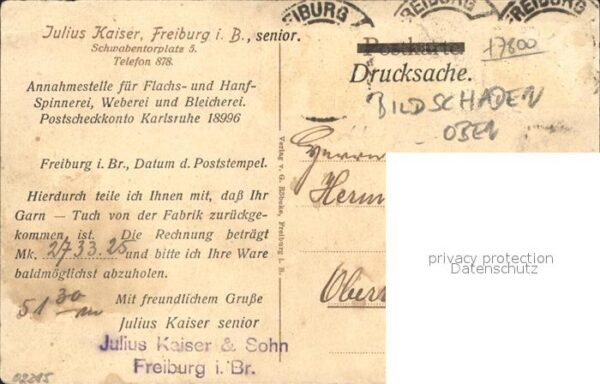 Julius Kaiser, Freiburg i. B., senior.
Schwabentorplatz 5.
Telefon 878.
Annahmestelle für Flachs- und Hanf-
Spinnerei, Weberei und Bleicherei.
Postscheckkonto Karlsruhe 18996
Freiburg i. Br., Datum d. Poststempel.
Hierdurch teile ich Ihnen mit, daß Ihr
Garn — Tuch von der Fabrik zurückge-
kommen ist. Die Rechnung beträgt
Mk. 2733.25 und bitte ich Ihre Ware
baldmöglichst abzuholen.
Mit freundlichem Gruße
Julius Kaiser senior
Julius Kaiser & Sohn
Freiburg i. Br.
02215
Verlag v. G. Röbcke, Freiburg i. B.
FREIBURG
FREIBURG
Postkarte
17800
Drucksache.
BILDSCHADEN
OBEN
Herrn
privacy protection
Datenschutz